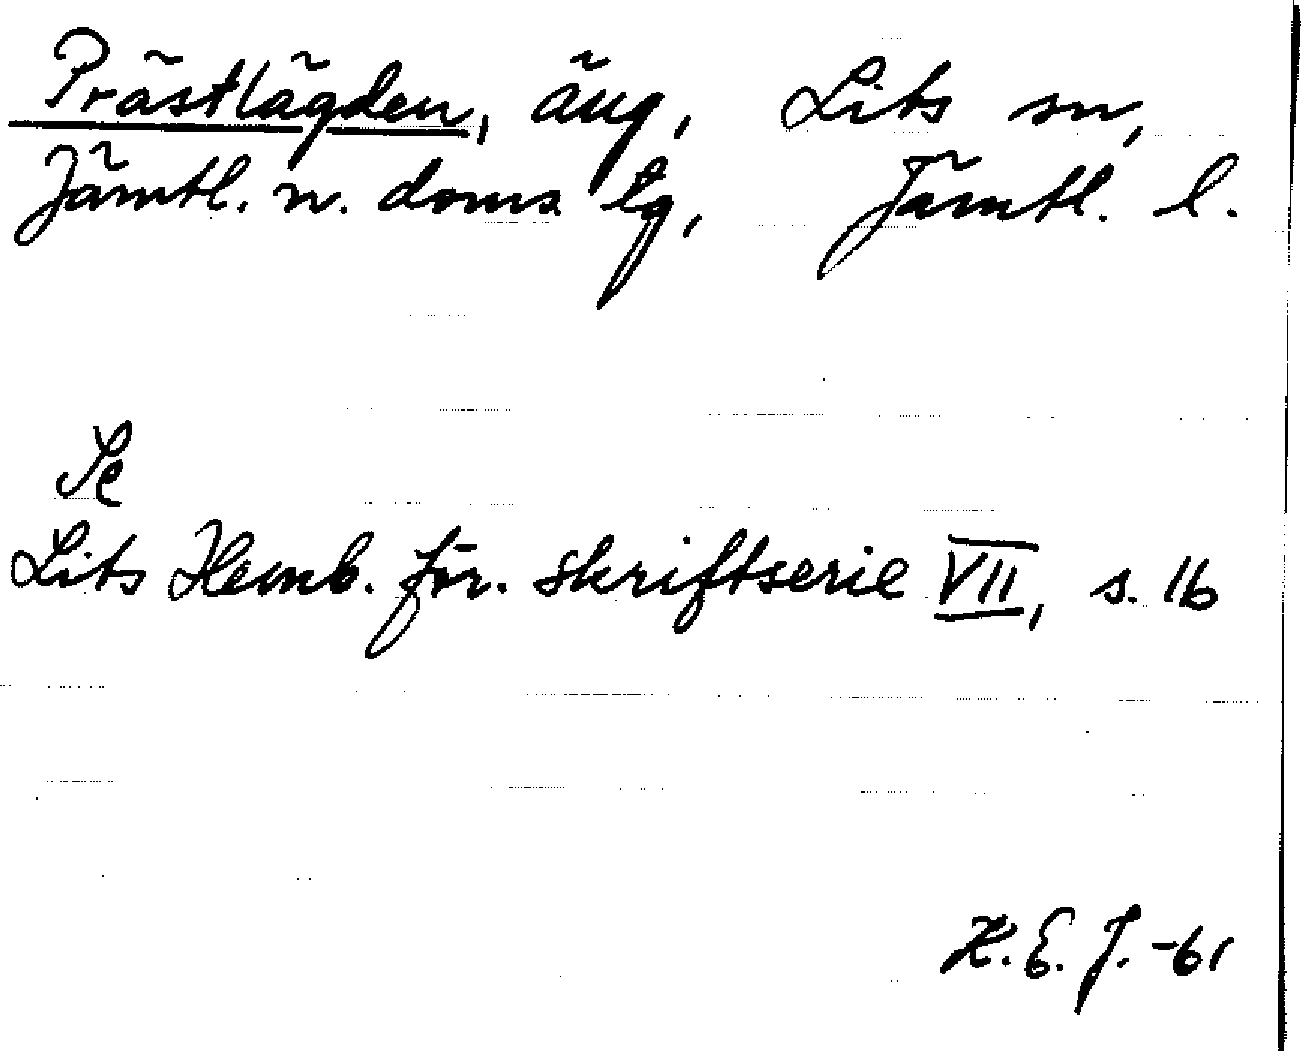 Prästlägden, äng, Lits sn,
Jämtl. n. doms lg, Jämtl. l.
Se
Lits Hemb. för. skriftserie VII, s. 16
K. E. J. -61